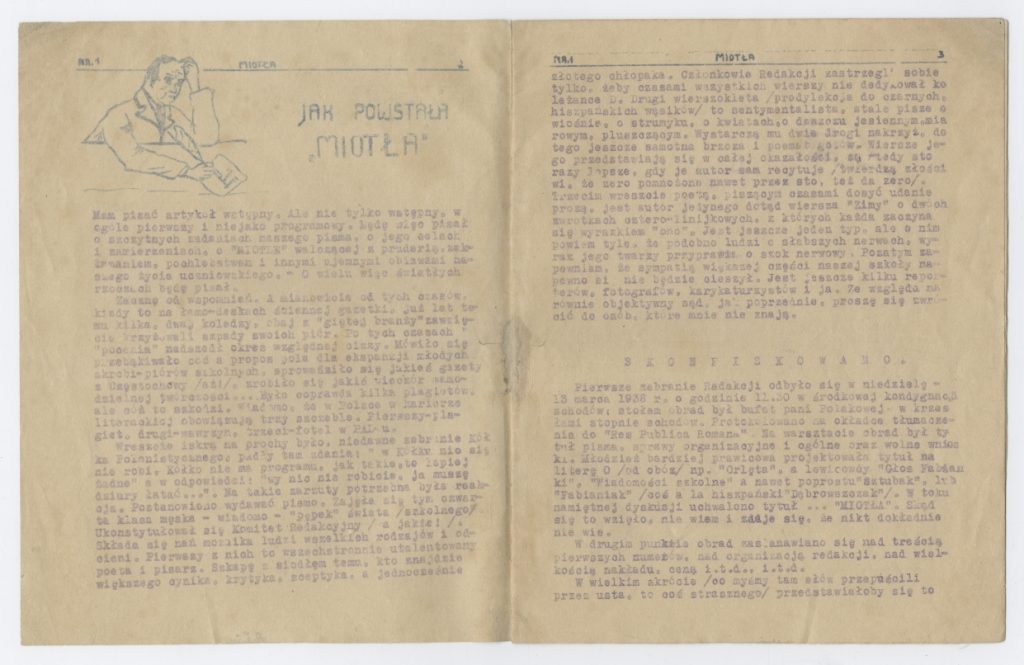 NR. 1 MIOTŁA 2
JAK POWSTAŁA
„MIOTŁA"
Mam pisać artykuł wstępny. Ale nie tylko wstępny, w
ogóle pierwszy i niejako programowy. Będę więc pisał
o szczytnych zadaniach naszego pisma, o jego celach
i zamierzeniach, o "MIOTLE" walczącej z pruderią, zak-
łamaniem, pochlebstwem i innymi ujemnymi objawami na-
szego życia uczniowskiego. - O wielu więc światłych
rzeczach będę pisał.
Zacznę od wspomnień. A mianowicie od tych czasów,
kiedy to na łamo-deskach ściennej gazetki, już lat te-
mu kilka, dwaj koledzy, obaj z "giętej branży" zawzię-
cie krzyżowali szpady swoich piór. Po tych czasach
"pocenia" nadszedł okres względnej ciszy. Mówiło się
przebąkiwało coś a propos pola dla ekspansji młodych
skrobi-piórów szkolnych, sprowadziło się jakieś gazety
z Częstochowy /aż!/, zrobiło się jakiś wieczór samo-
dzielnej twórczości... Było coprawda kilka plagiatów,
ale cóż to szkodzi. Wiadomo, że w Polsce w karierze
literackiej obowiązują trzy szczeble. Pierwszy-pla-
giat, drugi-wawrzyn, trzeci-fotel w PALu.
Wreszcie iskrą na prochy było, niedawne zebranie Kół
ka Polonistycznego. Padły tam zdania: " w Kółku nic się
nie robi, Kółko nie ma programu, jak takie, to lepiej
żadne" a w odpowiedzi: "wy nic nie robicie, ja muszę
dziury łatać...". Na takie zarzuty potrzebna była reak-
cja. Postanowiono wydawać pismo. Zajęła się tym czwar-
ta klasa męska - wiadomo - "pępek" świata /szkolnego/.
Ukonstytuował się Komitet Redakcyjny / a jakże! /.
Składa się nań mozaika ludzi wszelkich rodzajów i od-
cieni. Pierwszy z nich to wszechstronnie utalentowany
poeta i pisarz. Szkapę z siodłem temu, kto znajdzie
większego cynika, krytyka, sceptyka, a jednocześnie
NR.1 MIOTŁA 3
złotego chłopaka. Członkowie Redakcji zastrzegli sobie
tylko, żeby czasami wszystkich wierszy nie dedykował ko
leżance D. Drugi wierszokleta /predylekcja do czarnych,
hiszpańskich wąsików/ to sentymentalista, stale pisze o
wiośnie, o strumyku, o kwiatach, o deszczu jesiennym, sza
rowym, pluszczącym. Wystarczą mu dwie drogi na krzyż, do
tego jeszcze samotna brzoza i poemat gotów. Wiersze je-
go przedstawiają się w całej okazałości, są wtedy sto
razy lepsze, gdy je autor sam recytuje /twierdzą złośli
wi, że zero pomnożone nawet przez sto, też da zero/.
Trzecim wreszcie poetą, piszącym czasami dosyć udanie
prozą, jest autor jedynego dotąd wiersza "Zimy" o dwóch
zwrotkach cztero-linijkowych, z których każda zaczyna
się wyrazkiem "ono". Jest jeszcze jeden typ, ale o nim
powiem tyle, że podobno ludzi o słabszych nerwach, wy-
raz jego twarzy przyprawia o szok nerwowy. Pozatym za-
pewniam, że sympatią większej części naszej szkoły na-
pewno się nie będzie cieszył. Jest jeszcze kilku repor-
terów, fotografów, karykaturzystów i ja. Ze względu na
równie objektywny sąd, jak poprzednie, proszę się zwró-
cić do osób, które mnie nie znają.
S K O N F I S K O W A N O .
Pierwsze zebranie Redakcji odbyło się w niedzielę -
13 marca 1938 r. o godzinie 11.30 w środkowej kondygnacji
schodów; stołem obrad był bufet pani Polakowej a krzes
łami stopnie schodów. Protokołowano na okładce tłumacze-
nia do "Res Publica Romana". Na warsztacie obrad był ty
tuł pisma, sprawy organizacyjne i ogólne oraz wolne wnios
ki. Młodzież bardziej prawicowa projektowała tytuł na
literę O /od obóz/ np. "Orlęta", a lewicowcy "Głos Fabian
ki", "Wiadomości szkolne" a nawet poprostu "Sztubak", lub
"Fabianiak" /coś a la hiszpański "Dąbrowszczak"/. W toku
namiętnej dyskusji uchwalono tytuł ... "MIOTŁA". Skąd
się to wzięło, nie wiem i zdaje się, że nikt dokładnie
nie wie.
W drugim punkcie obrad zastanawiano się nad treścią
pierwszych numerów, nad organizacją redakcji, nad wiel-
kością nakładu, ceną i.t.d., i.t.d.
W wielkim skrócie /co myśmy tam słów przepuścili
przez usta, to coś strasznego/ przedstawiałoby się to